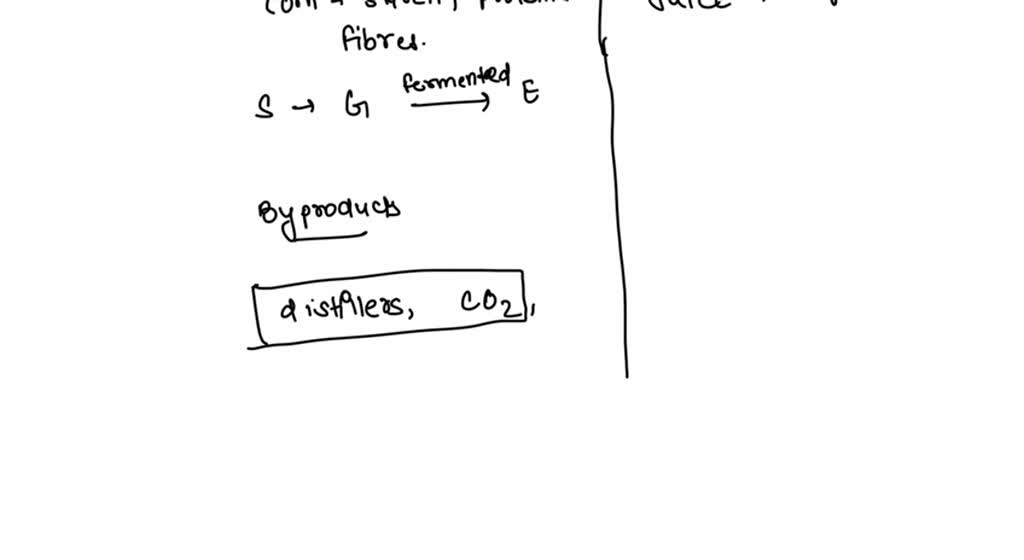 fibres.
S → G fermented E
Byproducts
distillers, CO2,